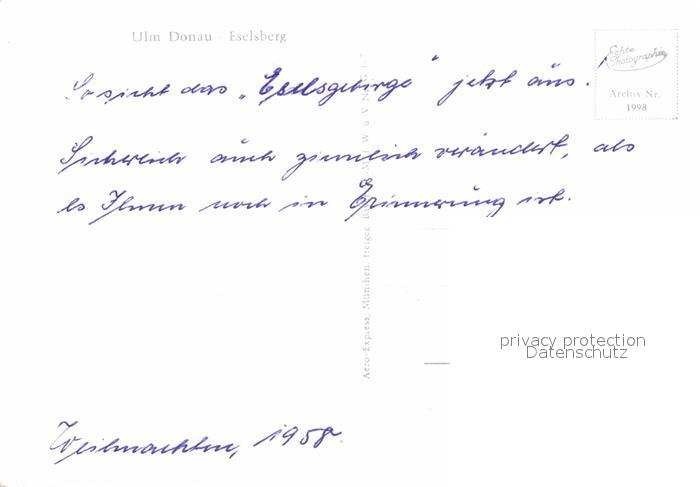 Ulm Donau · Eselsberg
Echte
Photographie
Archiv Nr.
1998
So sieht das „Eselsgebirge" jetzt aus.
Sicherlich auch ziemlich verändert, als
es Ihnen noch in Erinnerung ist.
Aero-Express, München, freigeg.
privacy protection
Datenschutz
Weihnachten, 1958.